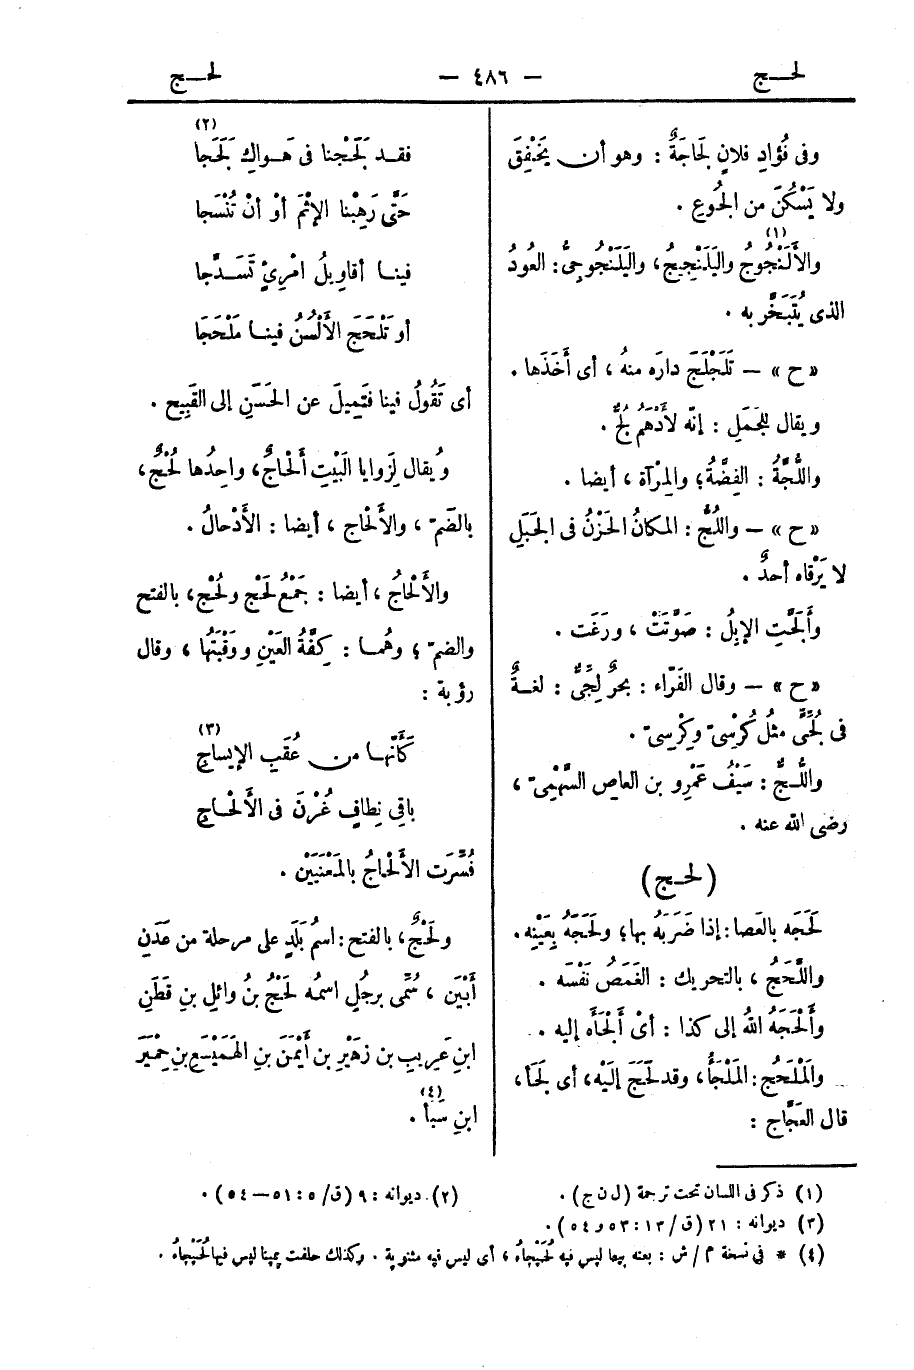 لحـج — ٤٨٦ — لحـج
وفى فُؤادِ فلانٍ لَجاجَةٌ : وهو أن يَخْفِقَ
ولا يَسْكُنَ من الجُوعِ .
والأَلَنْجُوجُ واليَلَنْجِيجُ، واليَلَنْجُوجِىُّ: العُودُ (١)
الذى يُتَبَخَّر به .
«ح» — تَلَجْلَجَ دارَه منهُ ، أى أَخَذَها .
ويقال للجَمَلِ : إنّه لأَدْهَمُ لُجٌّ .
واللُّجَّةُ : الفِضَّةُ؛ والمِرْآة ، أيضا .
«ح» — واللُّجُّ : المكانُ الحَزْنُ فى الجَبَلِ
لا يَرْقاه أحدٌ .
وأَلَجَّتِ الإبِلُ : صَوَّتَتْ ، ورَغَت .
«ح» — وقال الفَرّاء : بحرٌ لِجِّىٌّ : لغـةٌ
فى لُجِّىٍّ مثلُ كُرْسِىّ وكِرْسِىّ .
واللُّـجُّ : سَيْفُ عَمْرِو بن العاص السَّهْمِىّ ،
رضى الله عنه .
(لحـج)
لَحَجَه بالعَصا: إذا ضَرَبَه بها؛ ولَحَجَهُ بِعَيْنِه.
واللَّحَجُ ، بالتحريك : الغَمَصُ نَفْسَه .
وأَلْحَجَهُ اللهُ إلى كذا : أىْ أَلْجَأَه إليه .
والمَلْحَج: المَلْجَأُ، وقد لَحَجَ إلَيْه، أى لَجَأ،
قال العَجَّاج :
فقـد لَحَجْنا فى هَـواكِ لَحَجا (٢)
حَتَّى رَهِبْنا الإِثْمَ أوْ أنْ تُنْسَجا
فينـا أقاويلُ امْرِئٍ تَسَـدَّجا
أو تَلْحَجَ الأَلْسُنُ فينـا مَلْحَجَا
أى تَقُولُ فينا فتَمِيلَ عن الحَسَنِ إلى القَبِيح .
ويُقال لِزَوايا البَيْتِ ألْحاجٌ، واحِدُها لُحْجٌ،
بالضّم ، والألْحاج ، أيضا : الأَدْحالُ .
والأَلْحاجُ ، أيضا : جَمْعُ لَحْج ولُحْج، بالفتح
والضمّ ؛ وهُمـا : كِفَّةُ العَيْنِ ووَقْبَتُها ، وقال
رؤبة :
كَأَنَّهـا من عُقَبِ الإيساجِ (٣)
باقِي نِطافٍ غُرْنَ فى الأَلْحـاجِ
فُسِّرَت الأَلْحاجُ بالمَعْنَيَيْن .
ولَحْجٌ، بالفتح: اسمُ بَلَدٍ على مرحلة من عَدَنِ
أَبْيَن ، سُمِّى برجُلٍ اسمُه لَحْجُ بنُ وائلِ بنِ قَطَنِ
ابنِ عَرِيبِ بن زهَيْرِ بن أَيْمَنَ بنِ الهَمَيْسَعِ بنِ حِمْيَر
ابنِ سَبَأ . (٤)
(١) ذكر فى اللسان تحت ترجمة (ل ن ج) .
(٢) ديوانه : ٩ (ق/٥ : ٥١—٥٤) .
(٣) ديوانه : ٢١ (ق/١٣ : ٥٣ و ٥٤) .
(٤) * فى نسخة م/ش : بعته بيعا ليس فيه لُحَيْجاءُ ، أى ليس فيه مثنوية . وكذلك حلفت يمينا ليس فيها لُحَيْجاءُ .